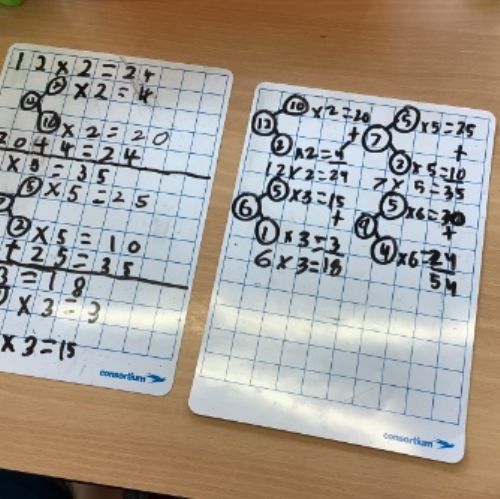 12 x 2 = 24
2 x 2 = 4
10 x 2 = 20
20 + 4 = 24
x 5 = 35
5 x 5 = 25
2 x 5 = 10
+ 25 = 35
3 = 18
x 3 = 3
x 3 = 15
consortium
10 x 2 = 20
+
12
2 x 2 = 4
12 x 2 = 24
5 x 3 = 15
+
6
1 x 3 = 3
6 x 3 = 18
5 x 5 = 25
+
7
2 x 5 = 10
7 x 5 = 35
5 x 6 = 30
+
9
4 x 6 = 24
54
consortium